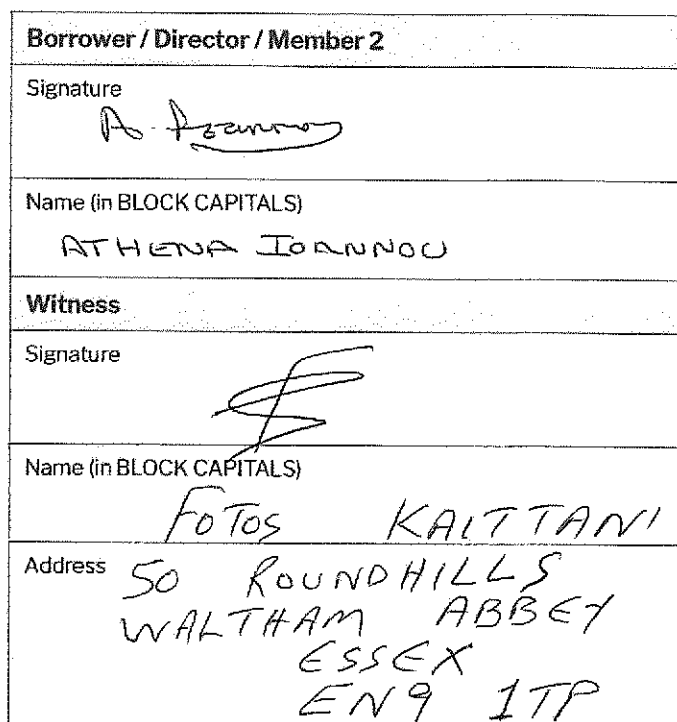 Borrower / Director / Member 2
Signature
A. Ioannou
Name (in BLOCK CAPITALS)
ATHENA IOANNOU
Witness
Signature
Name (in BLOCK CAPITALS)
FOTOS KAITTANI
Address 50 ROUNDHILLS
WALTHAM ABBEY
ESSEX
EN9 1TP